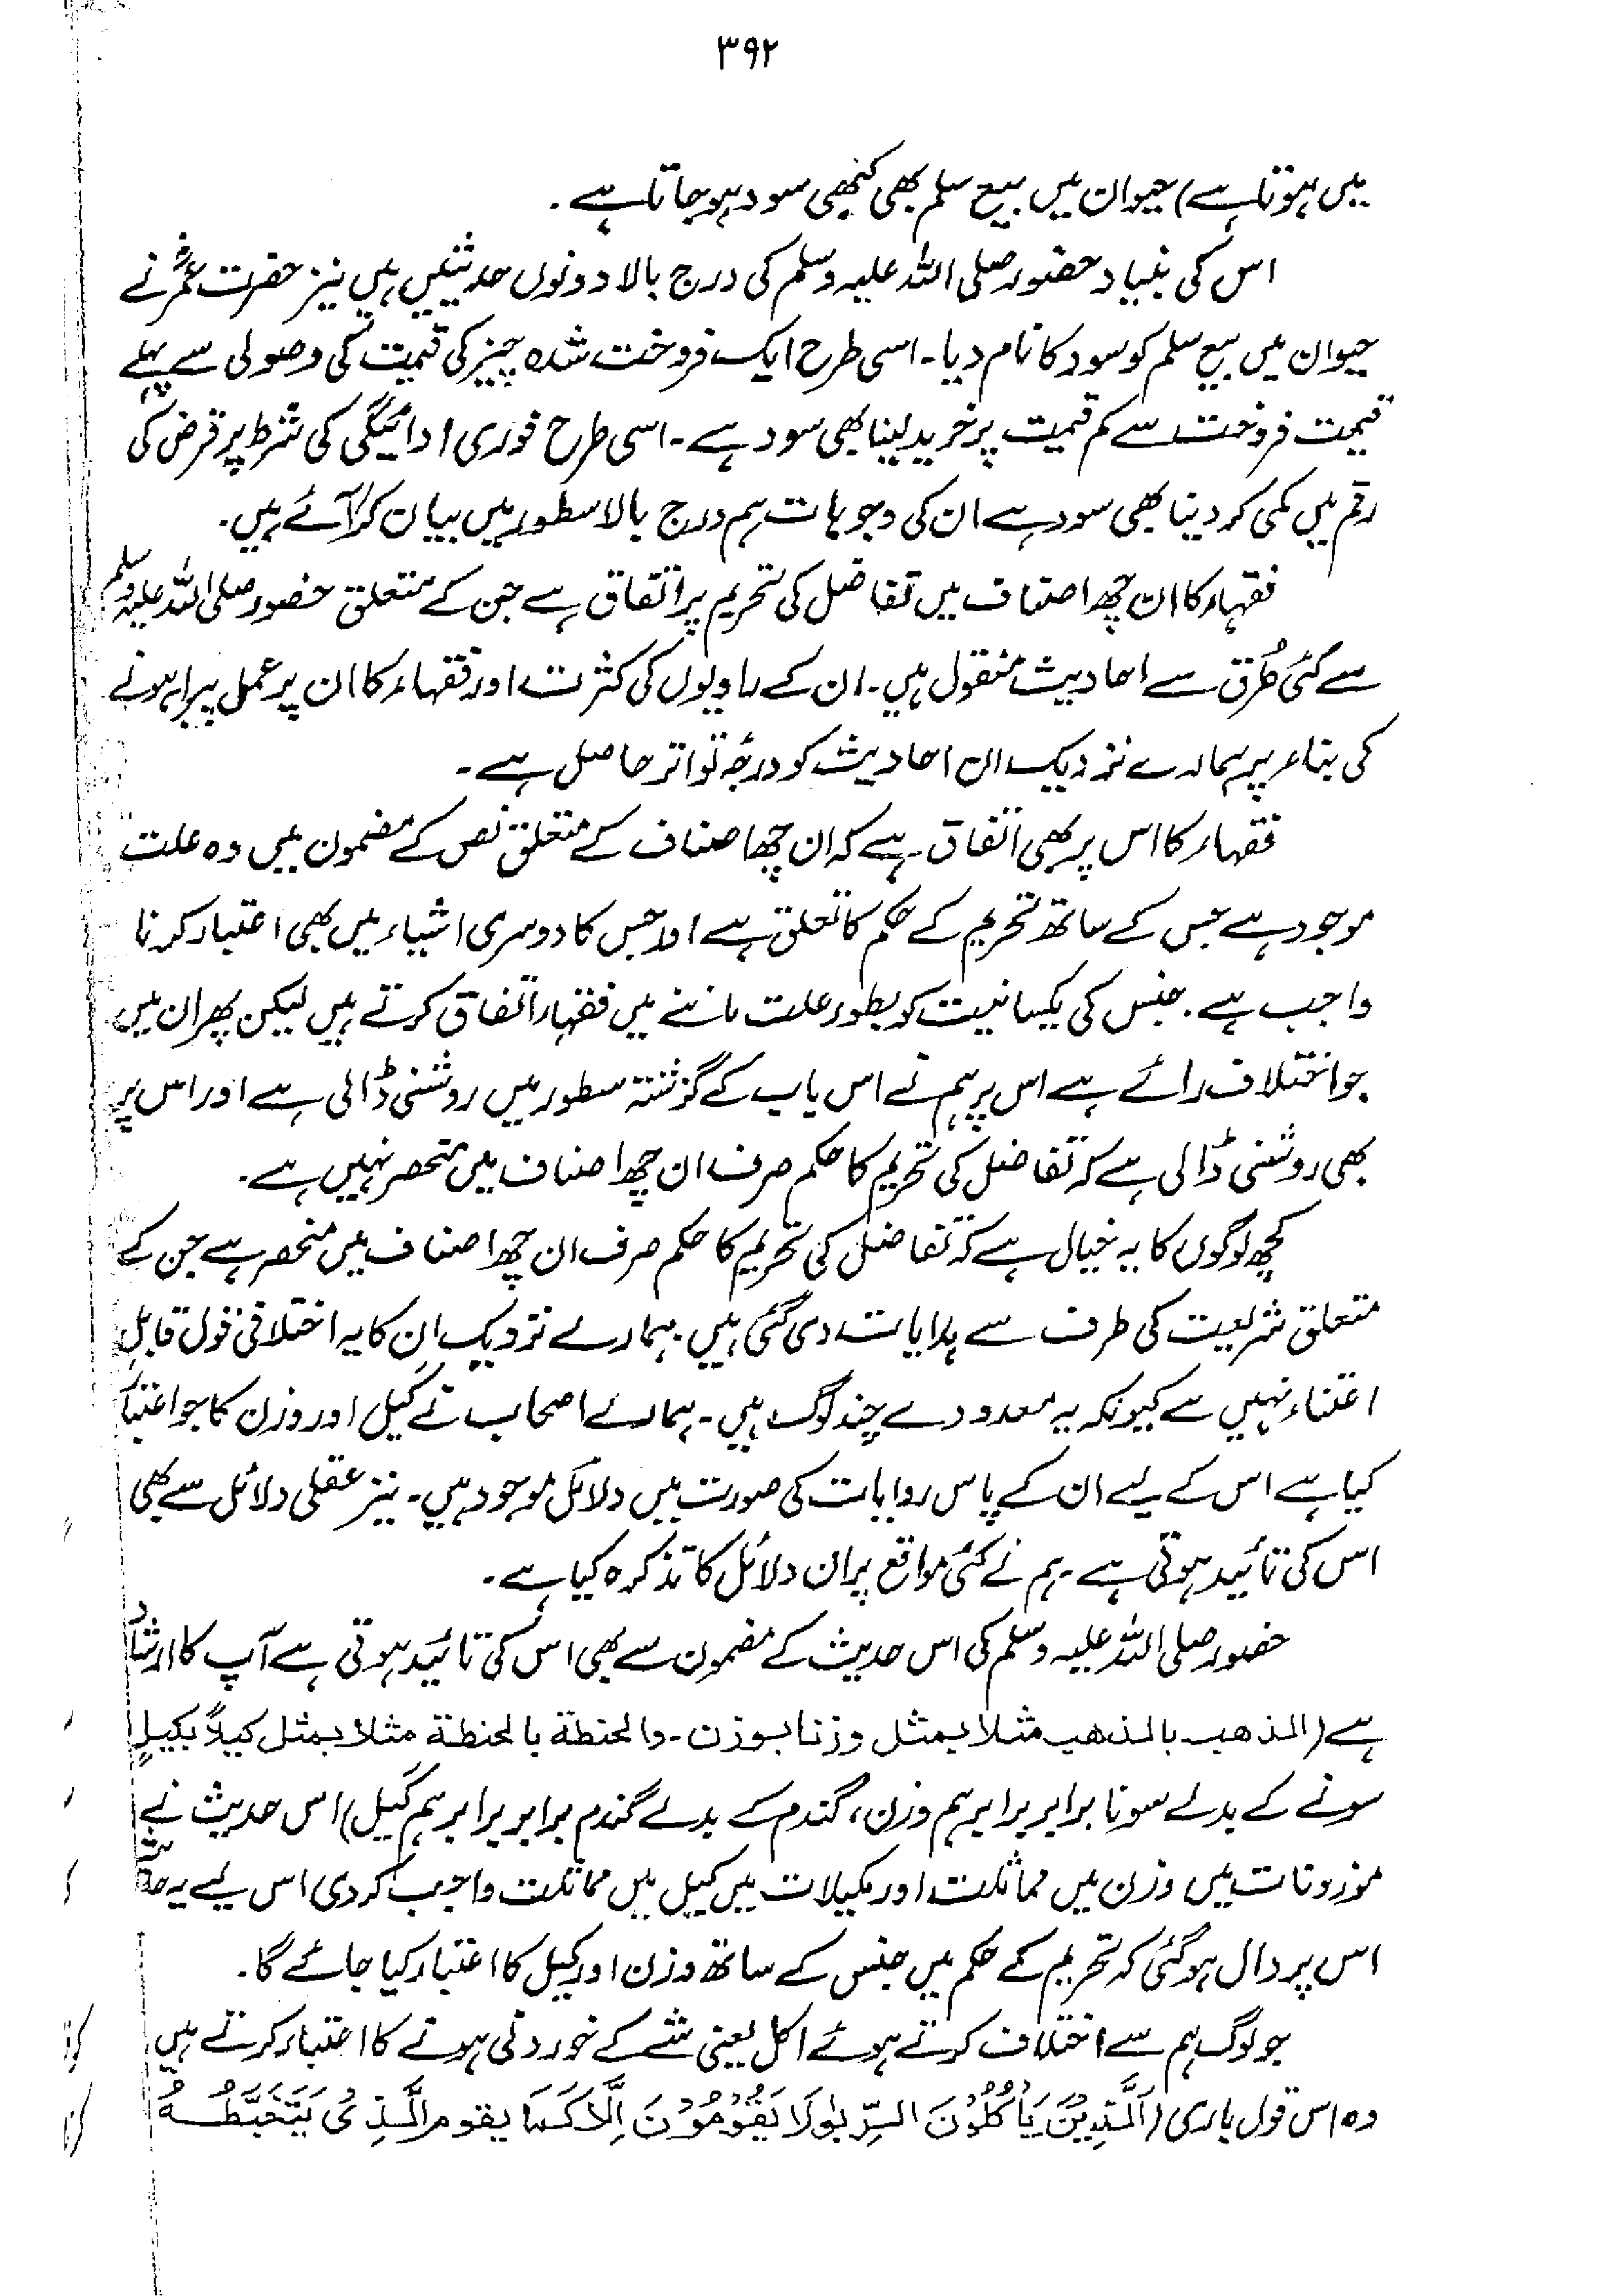 ۳۹۲
میں ہوتا ہے) حیوان میں بیع سلم بھی کبھی سود ہو جاتا ہے۔
اس کی بنیاد حضور صلی اللہ علیہ وسلم کی درج بالا دونوں حدیثیں ہیں نیز حضرت عمرؓ نے
حیوان میں بیع سلم کو سود کا نام دیا۔ اسی طرح ایک فروخت شدہ چیز کی قیمت کی وصولی سے پہلے
قیمت فروخت سے کم قیمت پر خرید لینا بھی سود ہے۔ اسی طرح فوری ادائیگی کی شرط پر قرض کی
رقم میں کمی کر دینا بھی سود ہے ان کی وجوہات ہم درج بالا سطور میں بیان کر آئے ہیں۔
فقہاء کا ان چھ اصناف میں تفاضل کی تحریم پر اتفاق ہے جن کے متعلق حضور صلی اللہ علیہ وسلم
سے کئی طُرق سے احادیث منقول ہیں۔ ان کے راویوں کی کثرت اور فقہاء کا ان پر عمل پیرا ہونے
کی بناء پر ہمارے نزدیک ان احادیث کو درجۂ تواتر حاصل ہے۔
فقہاء کا اس پر بھی اتفاق ہے کہ ان چھ اصناف کے متعلق نص کے مضمون میں وہ علت
موجود ہے جس کے ساتھ تحریم کے حکم کا تعلق ہے اور جس کا دوسری اشیاء میں بھی اعتبار کرنا
واجب ہے۔ جنس کی یکسانیت کو بطور علت ماننے میں فقہاء اتفاق کرتے ہیں لیکن پھر ان میں
جو اختلاف رائے ہے اس پر ہم نے اس باب کے گزشتہ سطور میں روشنی ڈالی ہے اور اس پر
بھی روشنی ڈالی ہے کہ تفاضل کی تحریم کا حکم صرف ان چھ اصناف میں منحصر نہیں ہے۔
کچھ لوگوں کا یہ خیال ہے کہ تفاضل کی تحریم کا حکم صرف ان چھ اصناف میں منحصر ہے جن کے
متعلق شریعت کی طرف سے ہدایات دی گئی ہیں۔ ہمارے نزدیک ان کا یہ اختلافی قول قابلِ
اعتناء نہیں ہے کیونکہ یہ معدودے چند لوگ ہیں۔ ہمارے اصحاب نے کَیل اور وزن کا جو اعتبار
کیا ہے اس کے لیے ان کے پاس روایات کی صورت میں دلائل موجود ہیں۔ نیز عقلی دلائل سے بھی
اس کی تائید ہوتی ہے۔ ہم نے کئی مواقع پر ان دلائل کا تذکرہ کیا ہے۔
حضور صلی اللہ علیہ وسلم کی اس حدیث کے مضمون سے بھی اس کی تائید ہوتی ہے آپ کا ارشاد
ہے (الذهب بالذهب مثلا بمثل وزنا بوزن۔ والحنطة بالحنطة مثلا بمثل کیلاً بکیلٍ
سونے کے بدلے سونا برابر برابر ہم وزن، گندم کے بدلے گندم برابر برابر ہم کَیل) اس حدیث نے
موزونات میں وزن میں مماثلت اور مکیلات میں کیل میں مماثلت واجب کر دی اس لیے یہ حدیث
اس پر دال ہو گئی کہ تحریم کے حکم میں جنس کے ساتھ وزن اور کیل کا اعتبار کیا جائے گا۔
جو لوگ ہم سے اختلاف کرتے ہوئے اکل یعنی شے کے خوردنی ہونے کا اعتبار کرتے ہیں
وہ اس قول باری (اَلَّذِیْنَ یَأْکُلُوْنَ الرِّبٰوا لَا یَقُوْمُوْنَ اِلَّا کَمَا یقوم الَّذِیْ یَتَخَبَّطُہُ